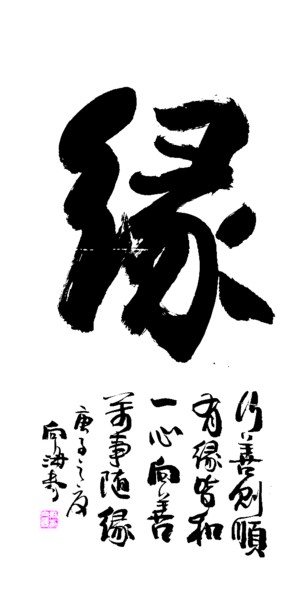 缘
行善则顺
有缘皆和
一心向善
万事随缘
庚子之夏
向海春